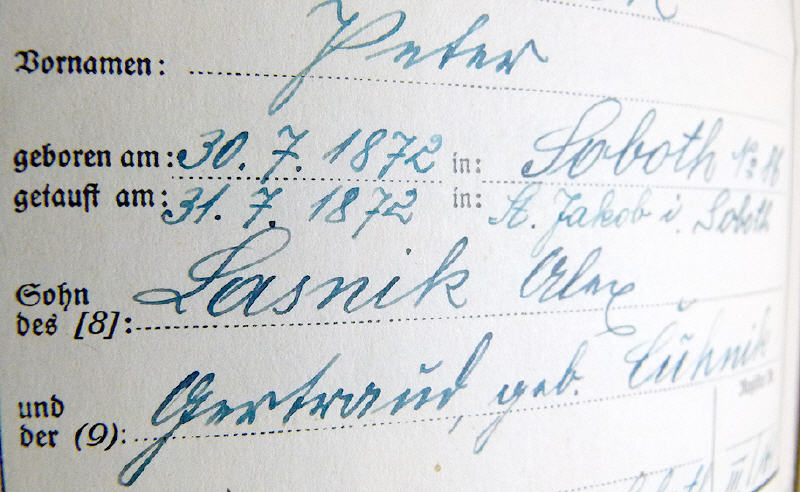 Vornamen: Peter
geboren am: 30. 7. 1872 in: Soboth No 86
getauft am: 31. 7. 1872 in: St. Jakob i. Soboth
Sohn
des [8]: Lasnik Alex
und
der (9): Gertraud, geb.